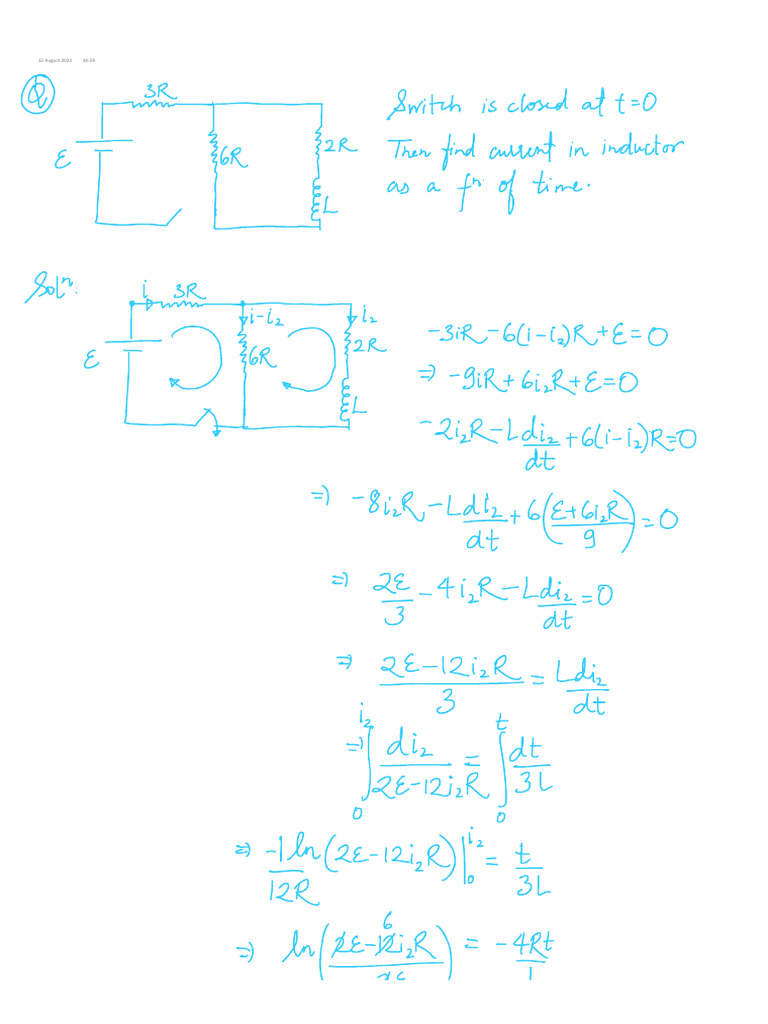 12 August 2022 16:24
Q
3R
ε
6R
2R
L
Switch is closed at t=0
Then find current in inductor
as a fⁿ of time.
Solⁿ:
i
3R
i-i₂
i₂
ε
6R
2R
L
-3iR-6(i-i₂)R+ε=0
⇒ -9iR+6i₂R+ε=0
-2i₂R-Ldi₂/dt+6(i-i₂)R=0
⇒ -8i₂R-Ldi₂/dt+6(ε+6i₂R/9)=0
⇒ 2ε/3-4i₂R-Ldi₂/dt=0
⇒ 2ε-12i₂R/3=Ldi₂/dt
⇒ ∫₀^i₂ di₂/2ε-12i₂R = ∫₀^t dt/3L
⇒ -1/12R ln(2ε-12i₂R)|₀^i₂ = t/3L
6
⇒ ln(2ε-12i₂R/2ε) = -4Rt/